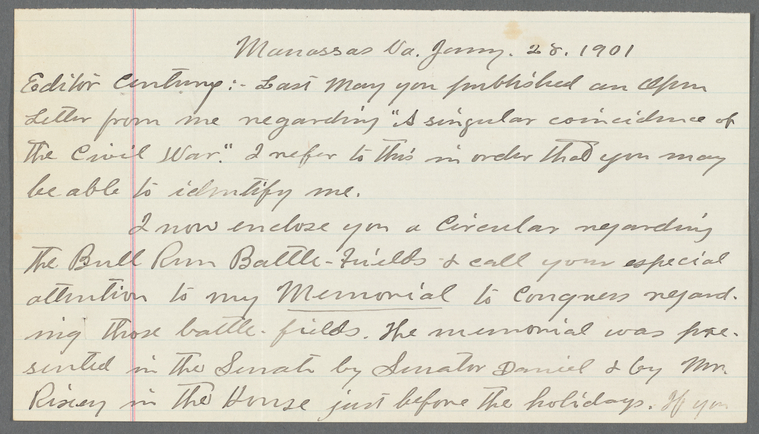 Manassas Va. Jany. 28. 1901
Editor Century:- Last May you published an Open
Letter from me regarding "A singular coincidence of
the Civil War." I refer to this in order that you may
be able to identify me.
I now enclose you a Circular regarding
the Bull Run Battle-Fields & call your especial
attention to my Memorial to Congress regard-
ing those battle-fields. The memorial was pre-
sented in the Senate by Senator Daniel & by Mr.
Rixey in the House just before the holidays. If you